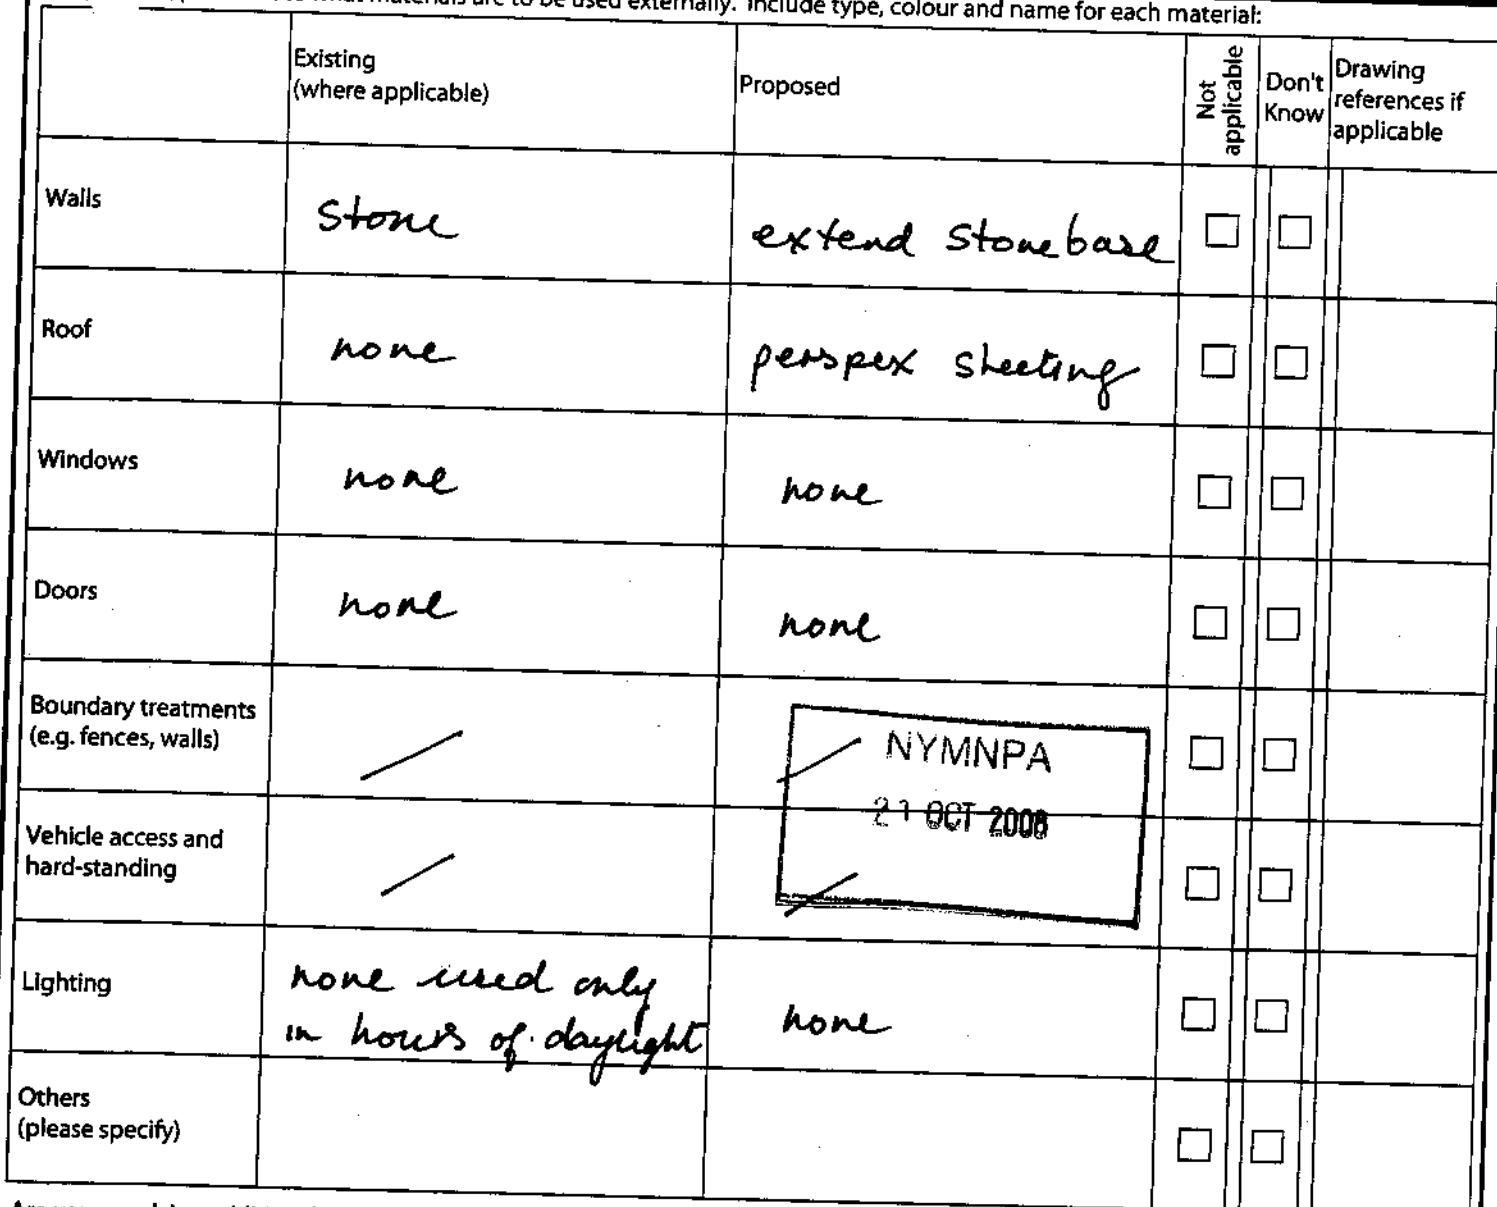 what materials are to be used externally. Include type, colour and name for each material:
Existing
(where applicable)
Proposed
Not
applicable
Don't
Know
Drawing
references if
applicable
Walls
Stone
extend Stone base
Roof
none
perspex sheeting
Windows
none
none
Doors
none
none
Boundary treatments
(e.g. fences, walls)
NYMNPA
21 OCT 2008
Vehicle access and
hard-standing
Lighting
none used only
in hours of daylight
none
Others
(please specify)